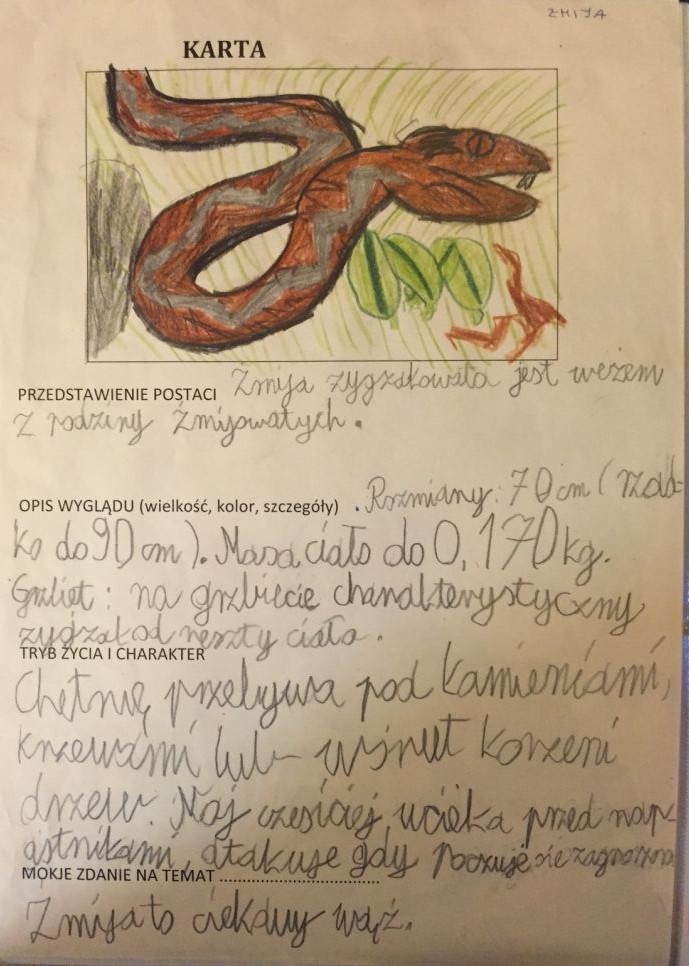 ŻMIJA
KARTA
PRZEDSTAWIENIE POSTACI Żmija zygzakowata jest wężem
z rodziny żmijowatych.
OPIS WYGLĄDU (wielkość, kolor, szczegóły) . Rozmiany: 70 cm (rzad-
ko do 90 cm). Masa ciało do 0,170 kg.
Grzbiet: na grzbiecie charakterystyczny
zygzak od reszty ciała.
TRYB ŻYCIA I CHARAKTER
Chętnię przebywa pod kamieniami,
krzewami lub wśrut korzeni
drzew. Naj częściej ucieka przed nap-
astnikami, atakuje gdy poczuje się zagrożona
MOKJE ZDANIE NA TEMAT ..................................
Żmija to ciekawy wąż.